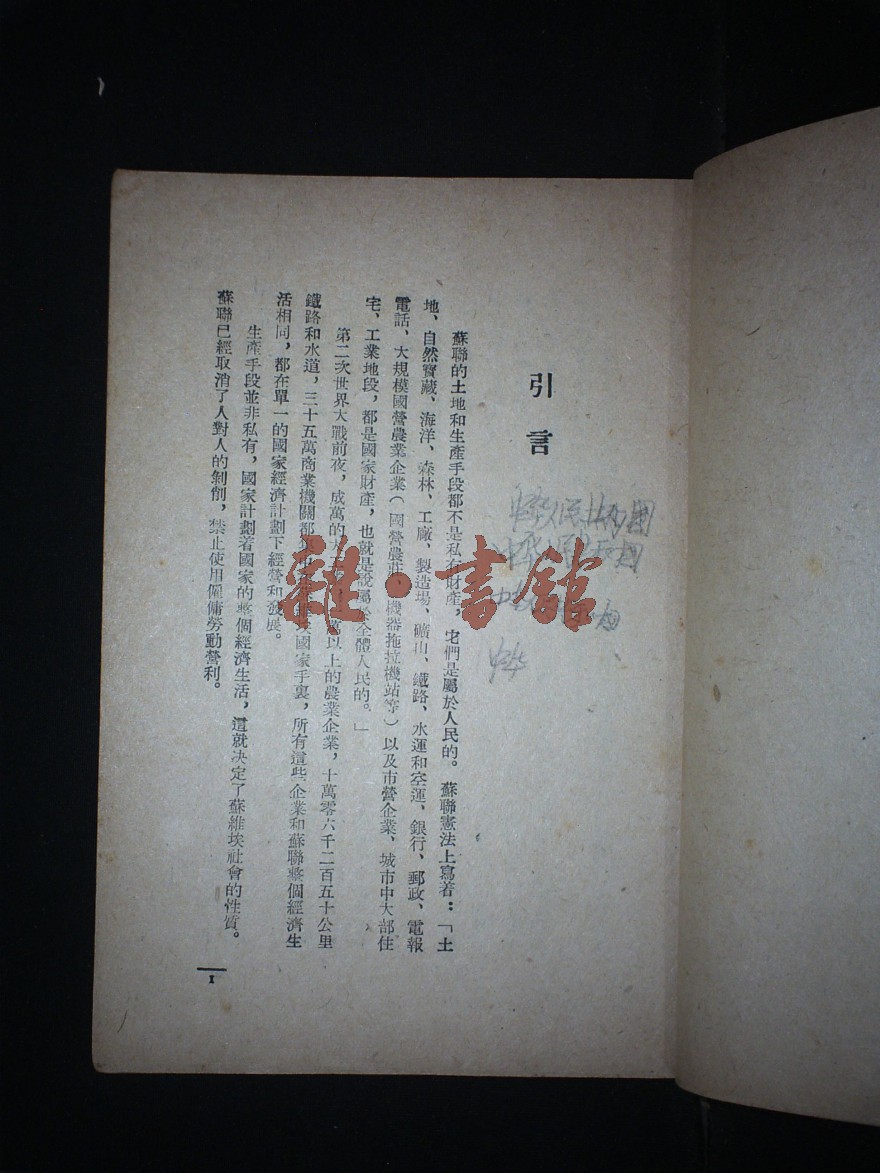 引言
蘇聯的土地和生產手段都不是私有財產，它們是屬於人民的。蘇聯憲法上寫着：「土
地、自然寶藏、海洋、森林、工廠、製造場、礦山、鐵路、水運和空運、銀行、郵政、電報
電話、大規模國營農業企業（國營農莊、機器拖拉機站等）以及市營企業、城市中大部住
宅、工業地段，都是國家財產，也就是說屬於全體人民的。」
第二次世界大戰前夜，成萬的大 萬以上的農業企業，十萬零六千二百五十公里
鐵路和水道，三十五萬商業機關都 國家手裏，所有這些企業和蘇聯整個經濟生
活相同，都在單一的國家經濟計劃下經營和發展。
生產手段並非私有，國家計劃着國家的整個經濟生活，這就决定了蘇維埃社會的性質。
蘇聯已經取消了人對人的剝削，禁止使用僱傭勞動營利。
1
雜·書館